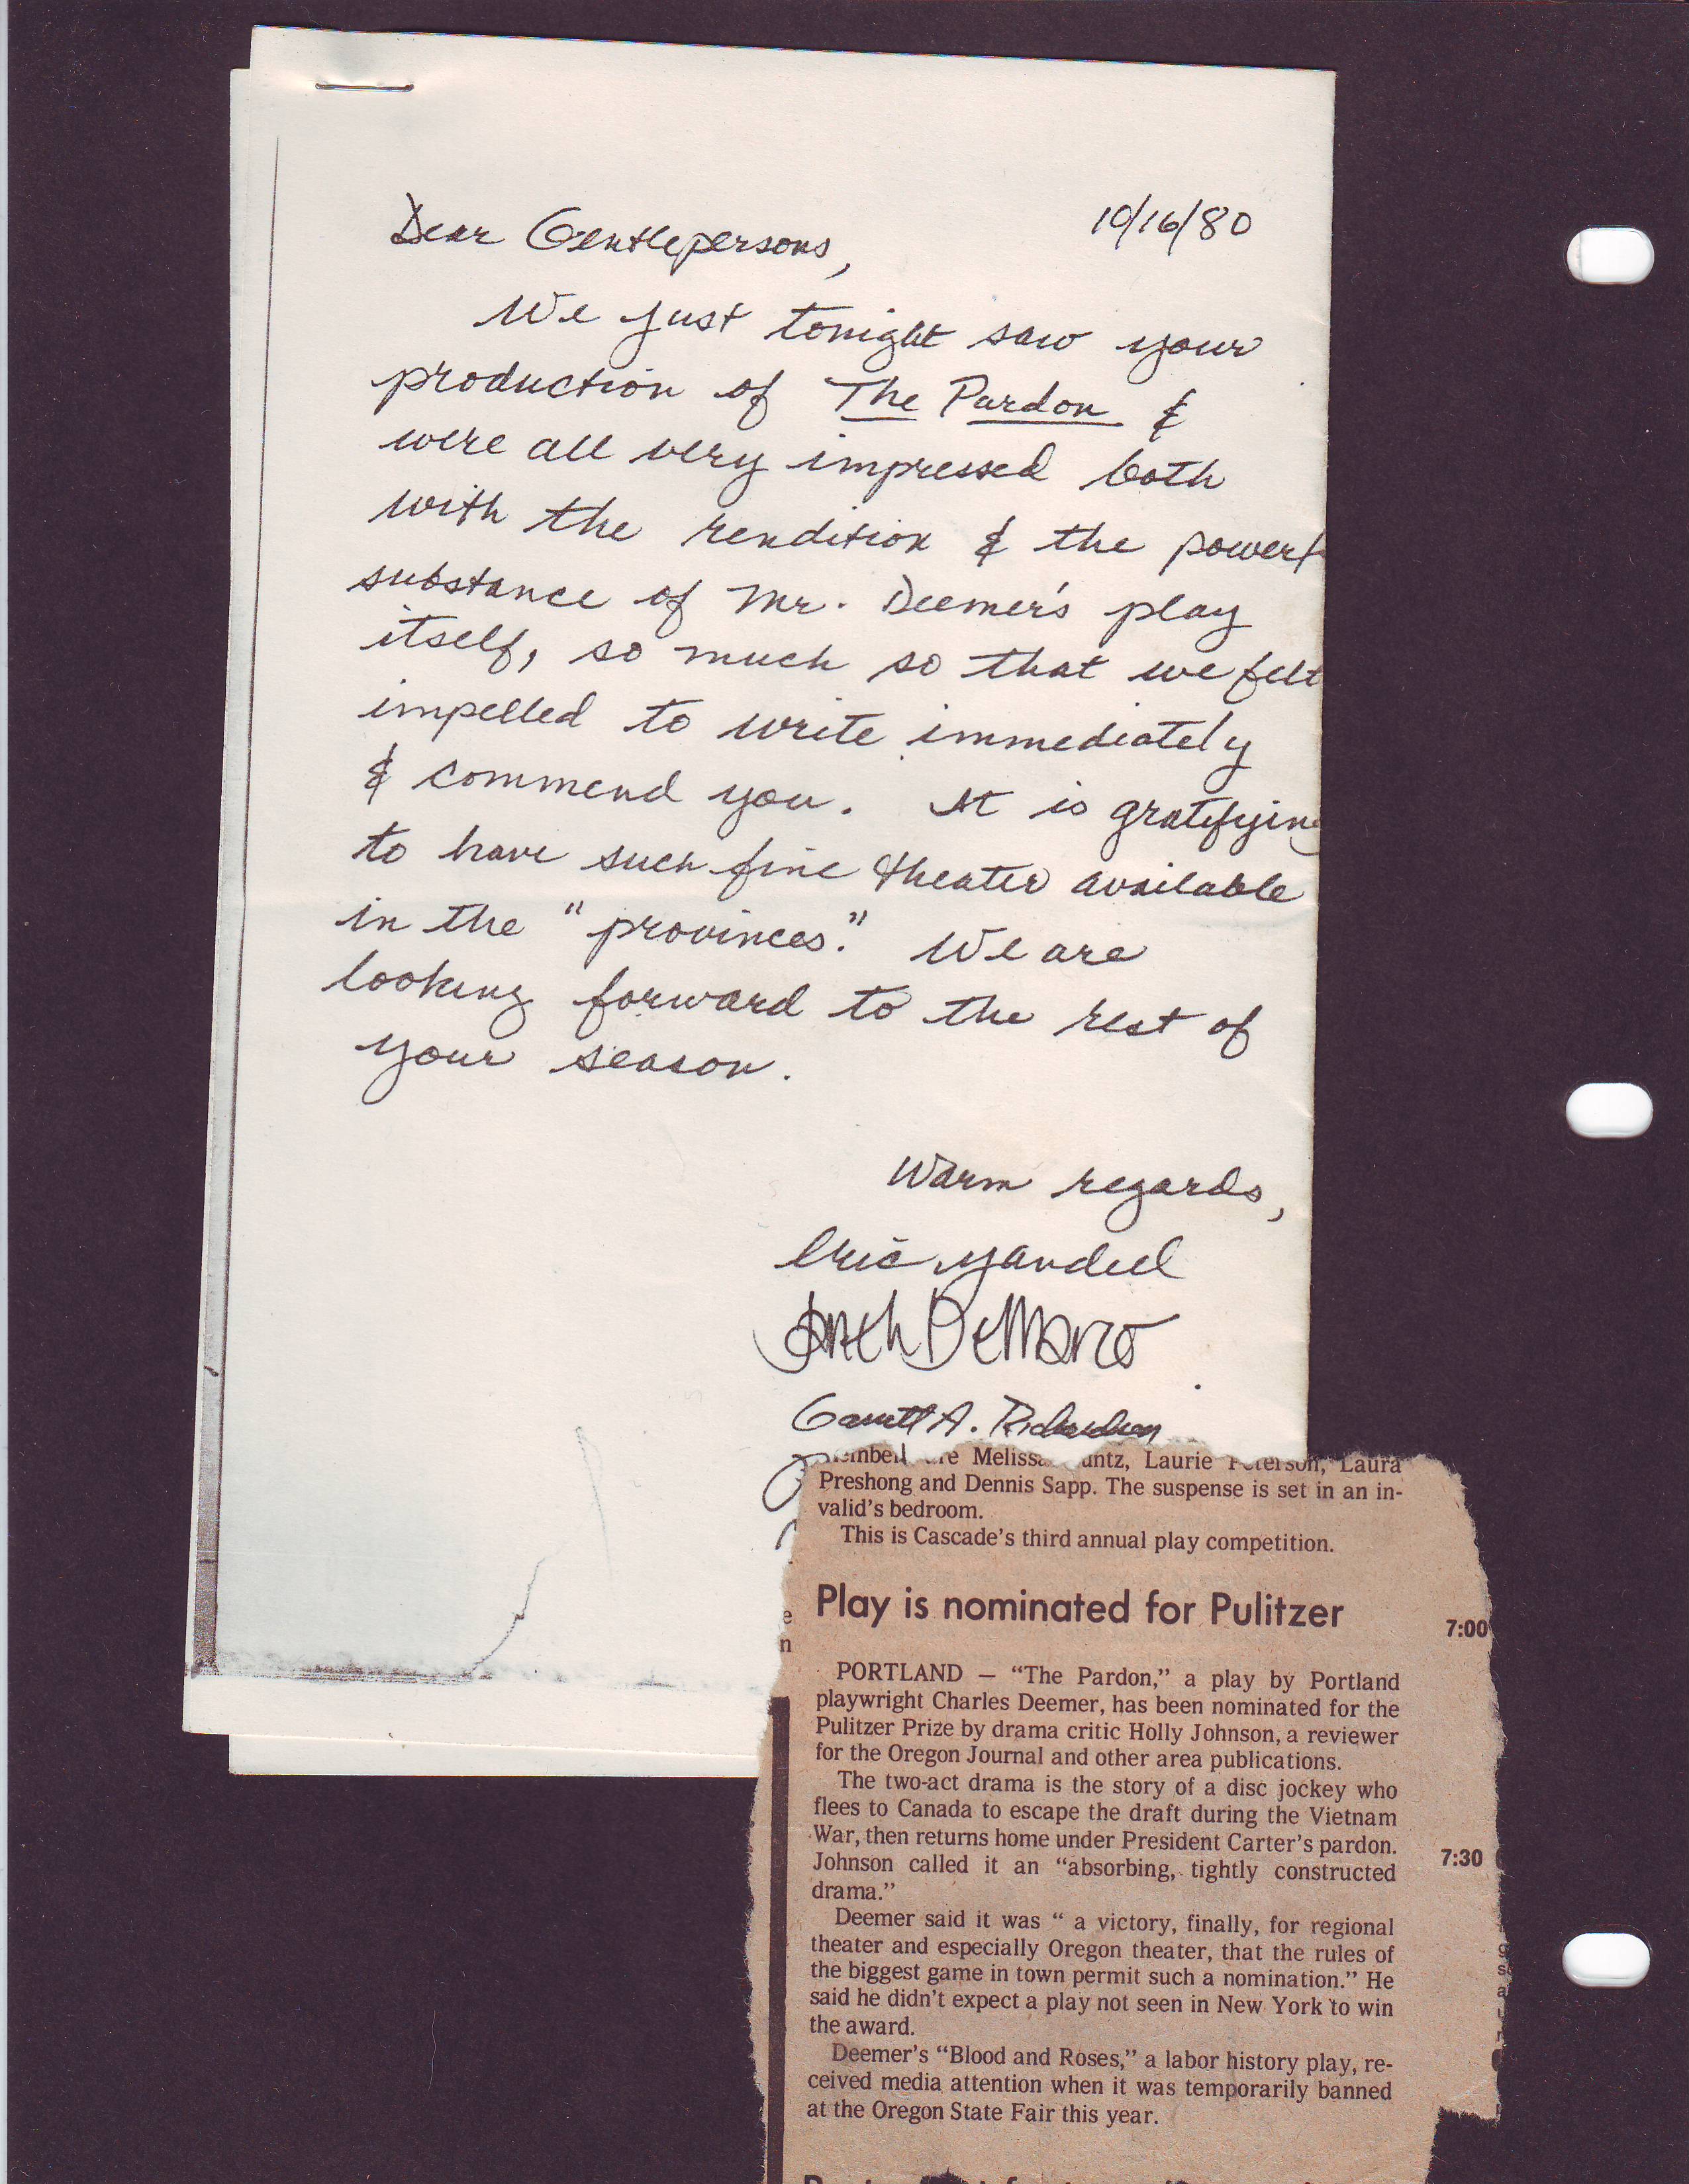 10/16/80
Dear Gentlepersons,
We just tonight saw your
production of The Pardon &
were all very impressed both
with the rendition & the powerf
substance of Mr. Deemer's play
itself, so much so that we felt
impelled to write immediately
& commend you. It is gratifying
to have such fine theater available
in the "provinces." We are
looking forward to the rest of
your season.
Warm regards,
Eric Yandell
DeMarco
Garrett A. Richardson
Melissa Laurie Peterson, Laura
Preshong and Dennis Sapp. The suspense is set in an in-
valid's bedroom.
This is Cascade's third annual play competition.
Play is nominated for Pulitzer
PORTLAND — "The Pardon," a play by Portland
playwright Charles Deemer, has been nominated for the
Pulitzer Prize by drama critic Holly Johnson, a reviewer
for the Oregon Journal and other area publications.
The two-act drama is the story of a disc jockey who
flees to Canada to escape the draft during the Vietnam
War, then returns home under President Carter's pardon.
Johnson called it an "absorbing, tightly constructed
drama."
Deemer said it was " a victory, finally, for regional
theater and especially Oregon theater, that the rules of
the biggest game in town permit such a nomination." He
said he didn't expect a play not seen in New York to win
the award.
Deemer's "Blood and Roses," a labor history play, re-
ceived media attention when it was temporarily banned
at the Oregon State Fair this year.
7:00
7:30